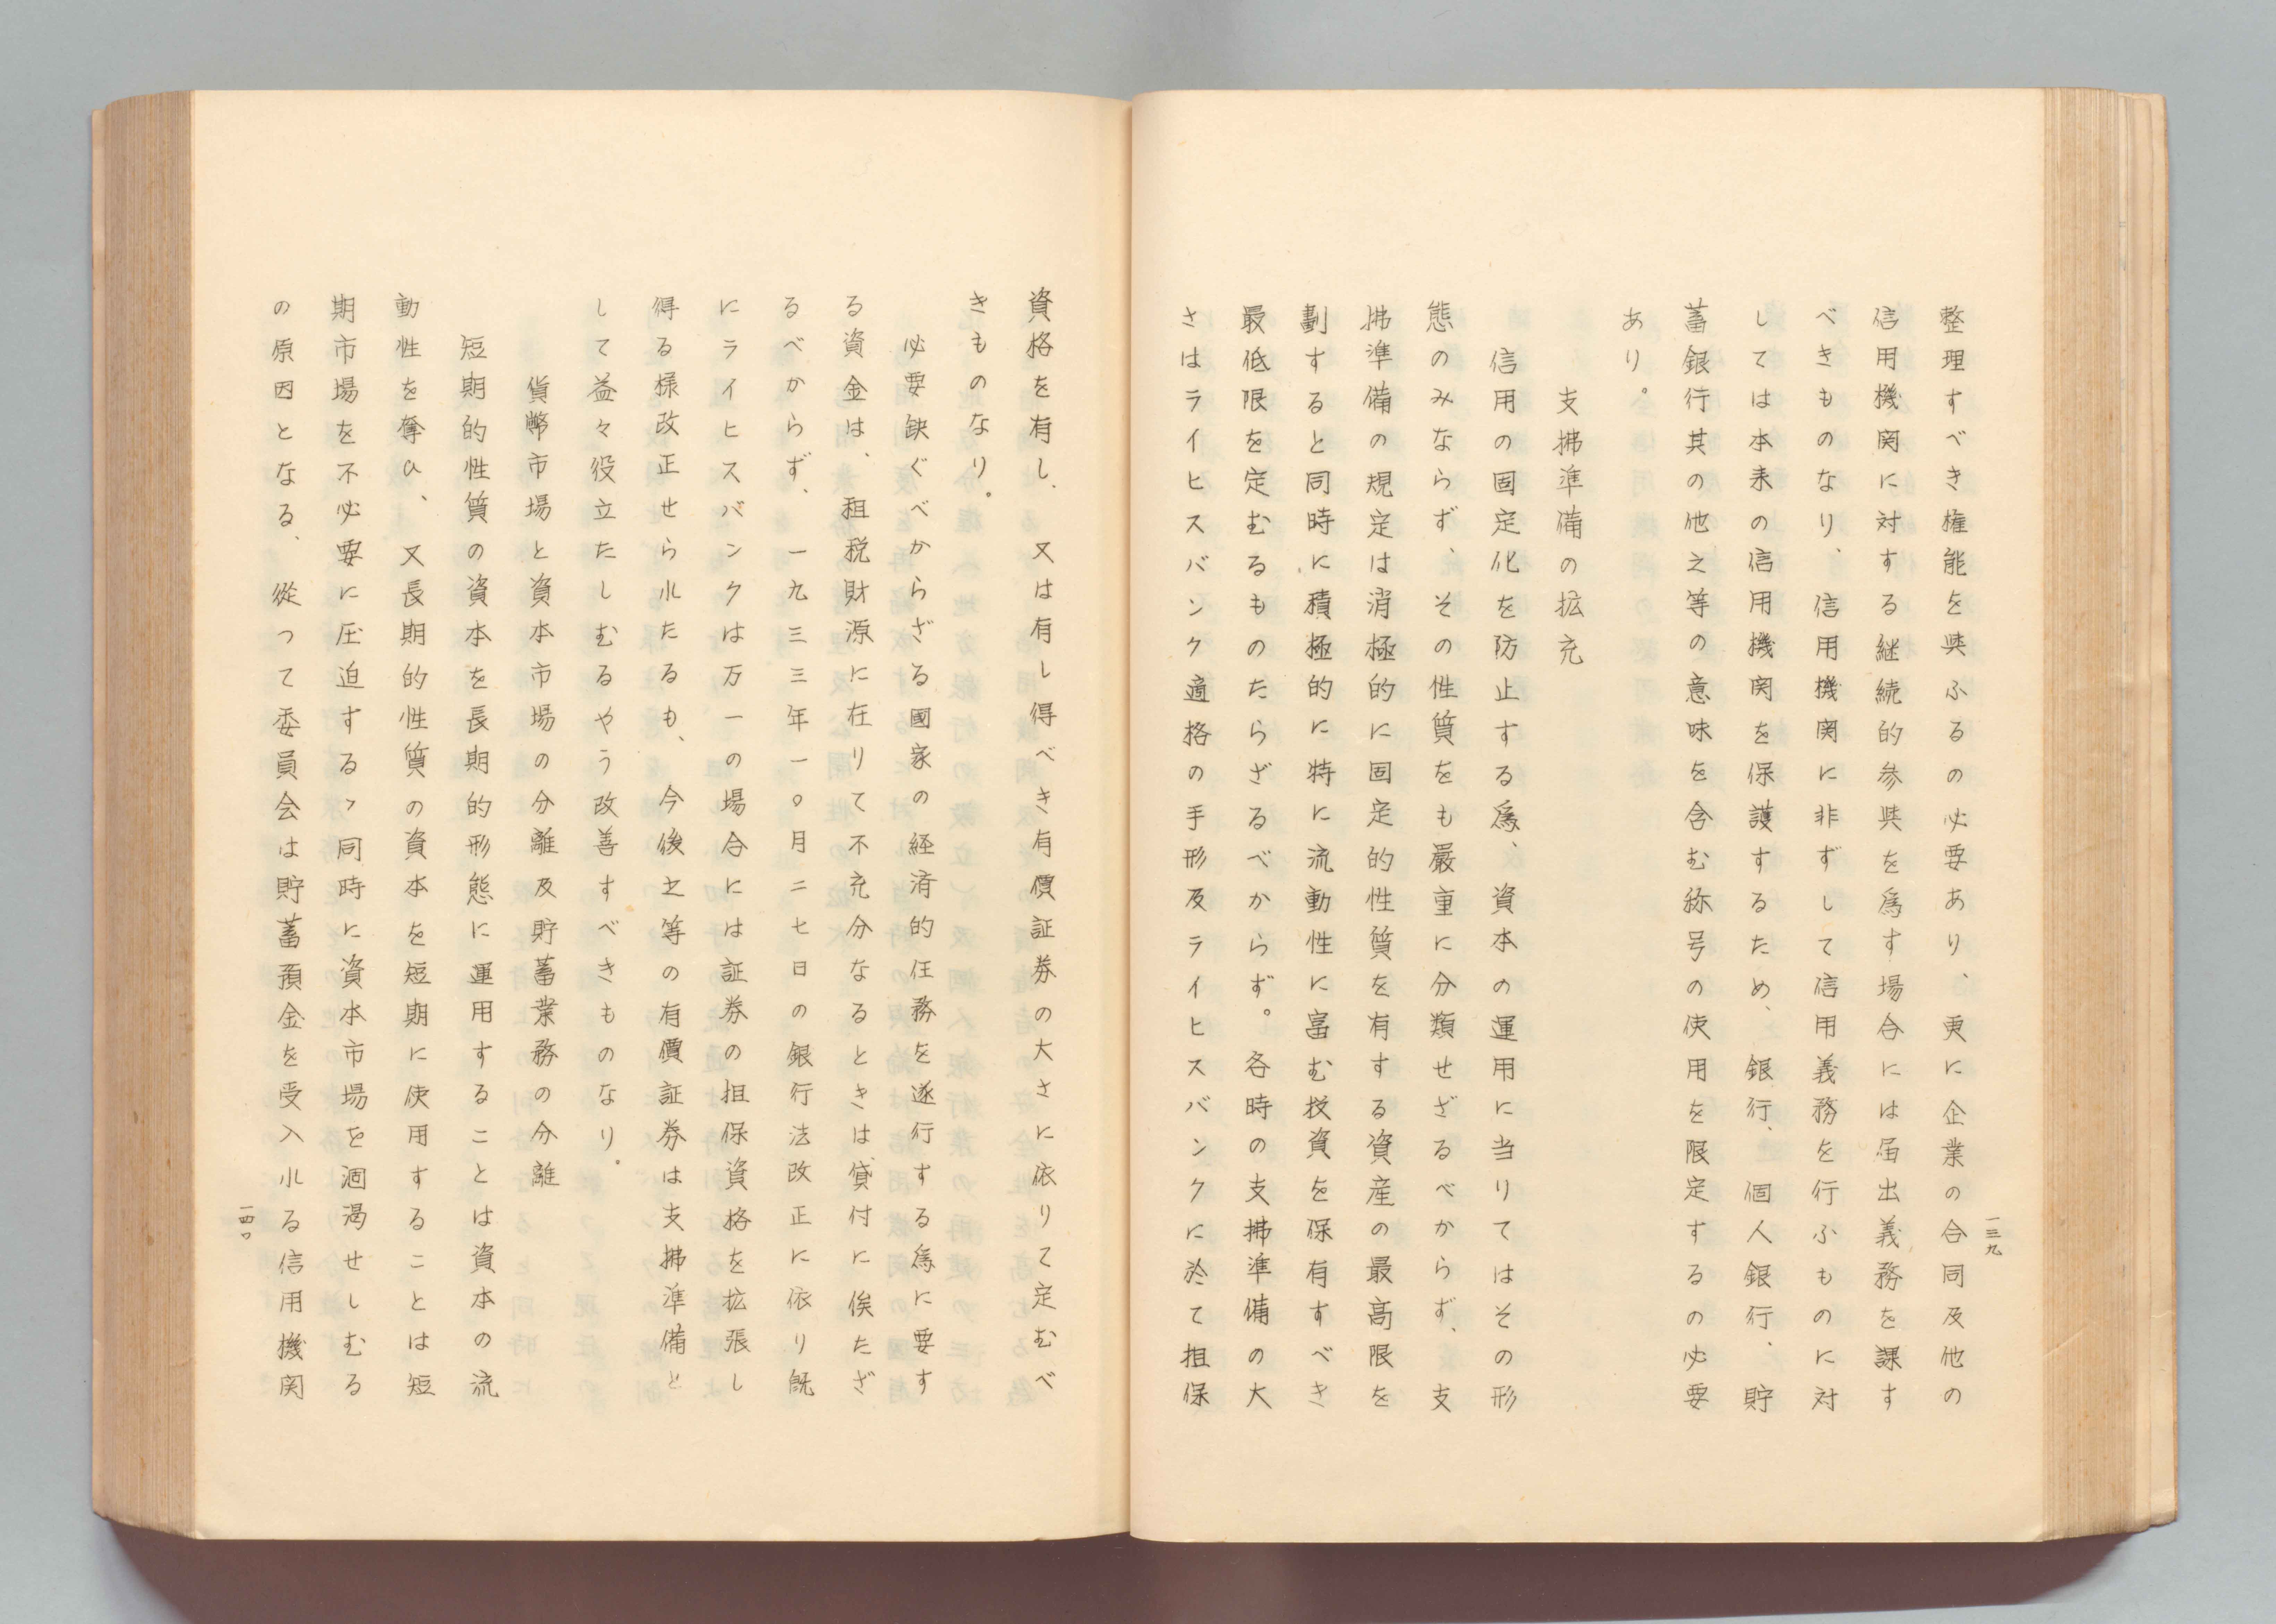 整理すべき権能を与ふるの必要あり、更に企業の合同及他の
信用機関に対する継続的参与を為す場合には届出義務を課す
べきものなり、信用機関に非ずして信用義務を行ふものに対
しては本来の信用機関を保護するため、銀行、個人銀行、貯
蓄銀行其の他之等の意味を含む称号の使用を限定するの必要
あり。
支拂準備の拡充
信用の固定化を防止する為、資本の運用に当りてはその形
態のみならず、その性質をも厳重に分類せざるべからず、支
拂準備の規定は消極的に固定的性質を有する資産の最高限を
劃すると同時に積極的に特に流動性に富む投資を保有すべき
最低限を定むるものたらざるべからず。各時の支拂準備の大
さはライヒスバンク適格の手形及ライヒスバンクに於て担保
一三九
資格を有し、又は有し得べき有價証券の大さに依りて定むべ
きものなり。
必要缺ぐべからざる國家の経済的任務を遂行する為に要す
る資金は、租税財源に在りて不充分なるときは貸付に俟たざ
るべからず、一九三三年一〇月二七日の銀行法改正に依り既
にライヒスバンクは万一の場合には証券の担保資格を拡張し
得る様改正せられたるも、今後之等の有價証券は支拂準備と
して益々役立たしむるやう改善すべきものなり。
貨幣市場と資本市場の分離及貯蓄業務の分離
短期的性質の資本を長期的形態に運用することは資本の流
動性を奪ひ、又長期的性質の資本を短期に使用することは短
期市場を不必要に圧迫すると同時に資本市場を涸渇せしむる
の原因となる、從つて委員会は貯蓄預金を受入れる信用機関
一四〇